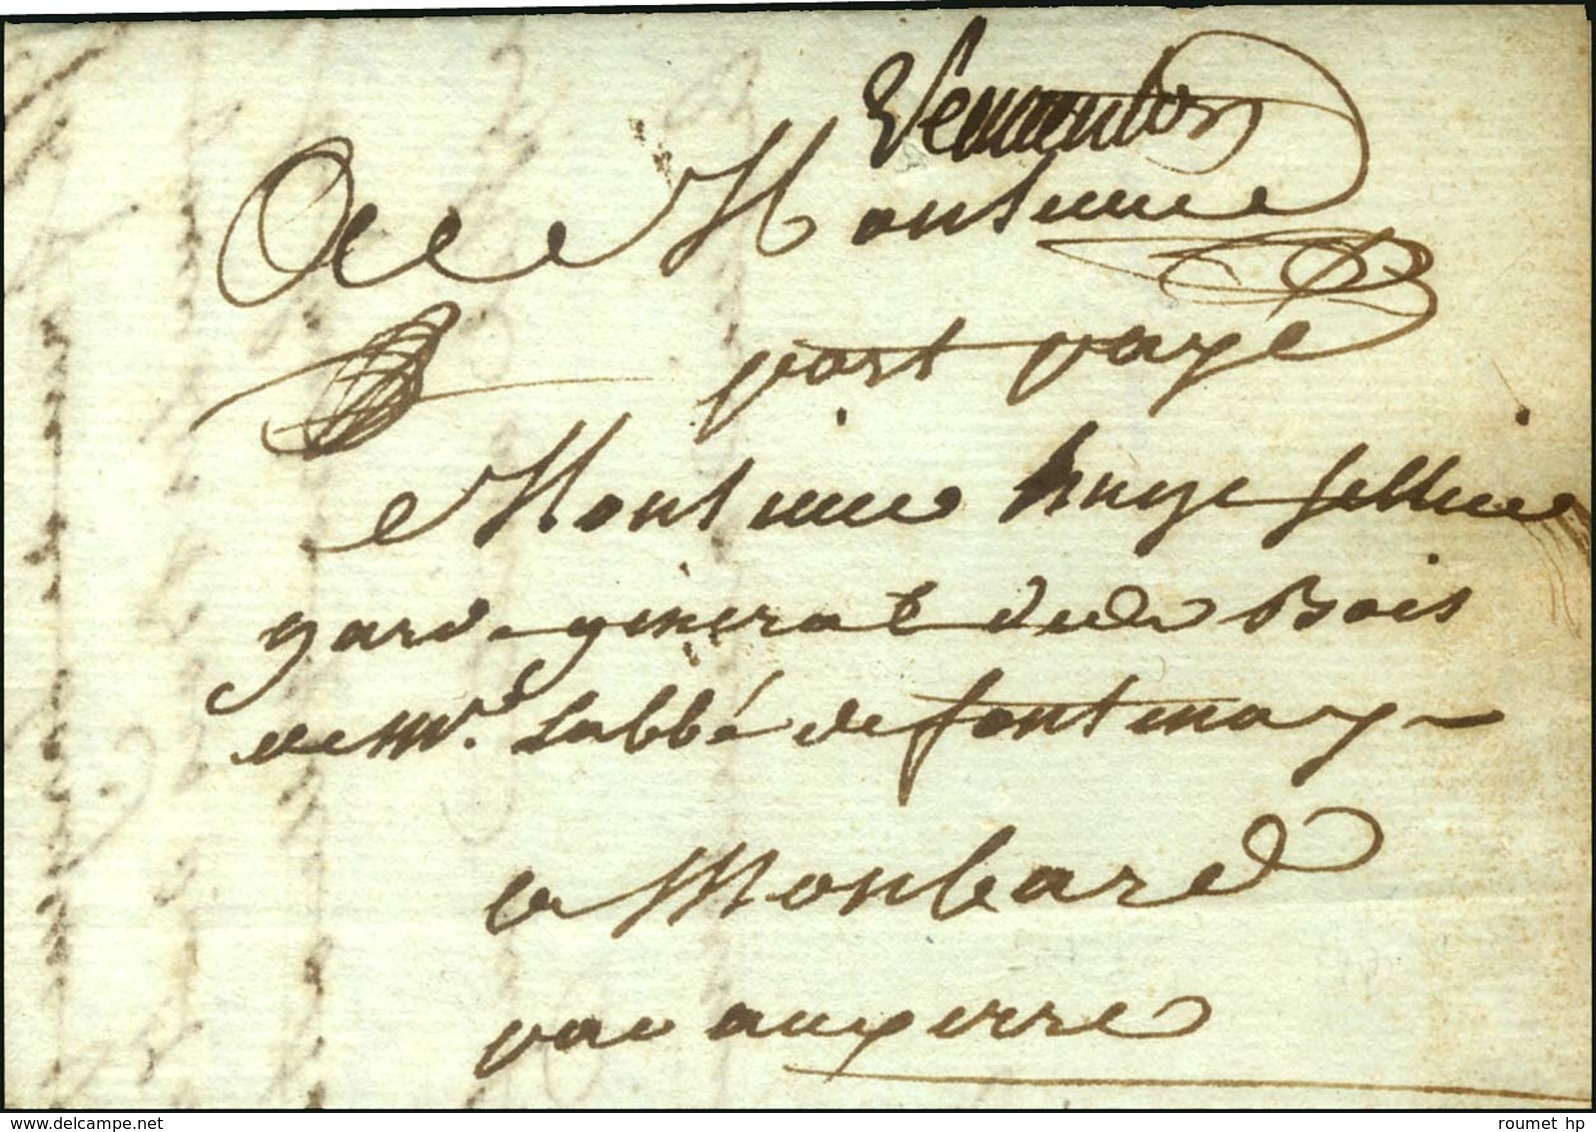 Vermanton
A Monsieur
port payé
Monsieur huge sellier
garde general des Bois
de Mr. Labbé de fontenay
a Monbard
par auxerre
www.delcampe.net
roumet hp